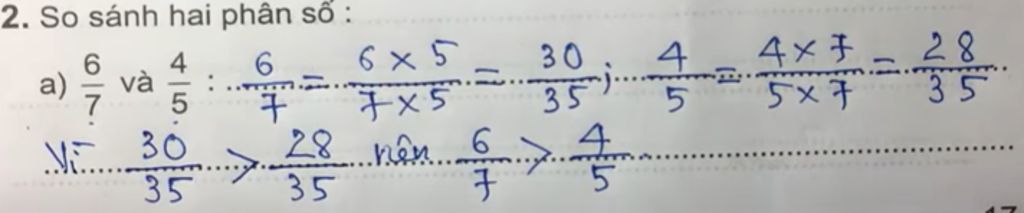 2. So sánh hai phân số :
a) 6/7 và 4/5 : 6/7 = 6 × 5/7 × 5 = 30/35 ; 4/5 = 4 × 7/5 × 7 = 28/35
Vì 30/35 > 28/35 nên 6/7 > 4/5